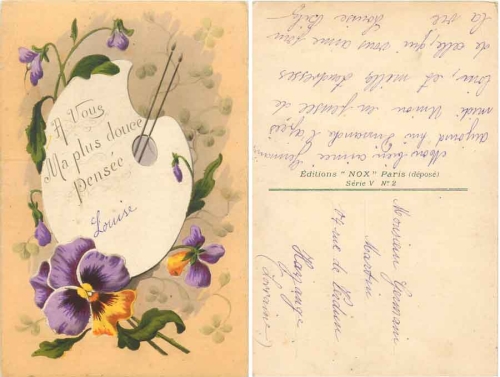 A Vous
Ma plus douce
Pensée
Louise
Mon bien aimé
aujourd'hui Dimanche
midi Union en pensée de
loin, et mille tendresses
de celle, qui vous aime pour
la vie
Louise
Éditions "NOX" Paris (déposé)
Série V N° 2
Monsieur Germain
Martin
rue de Verdun
Hayange
(Lorraine)